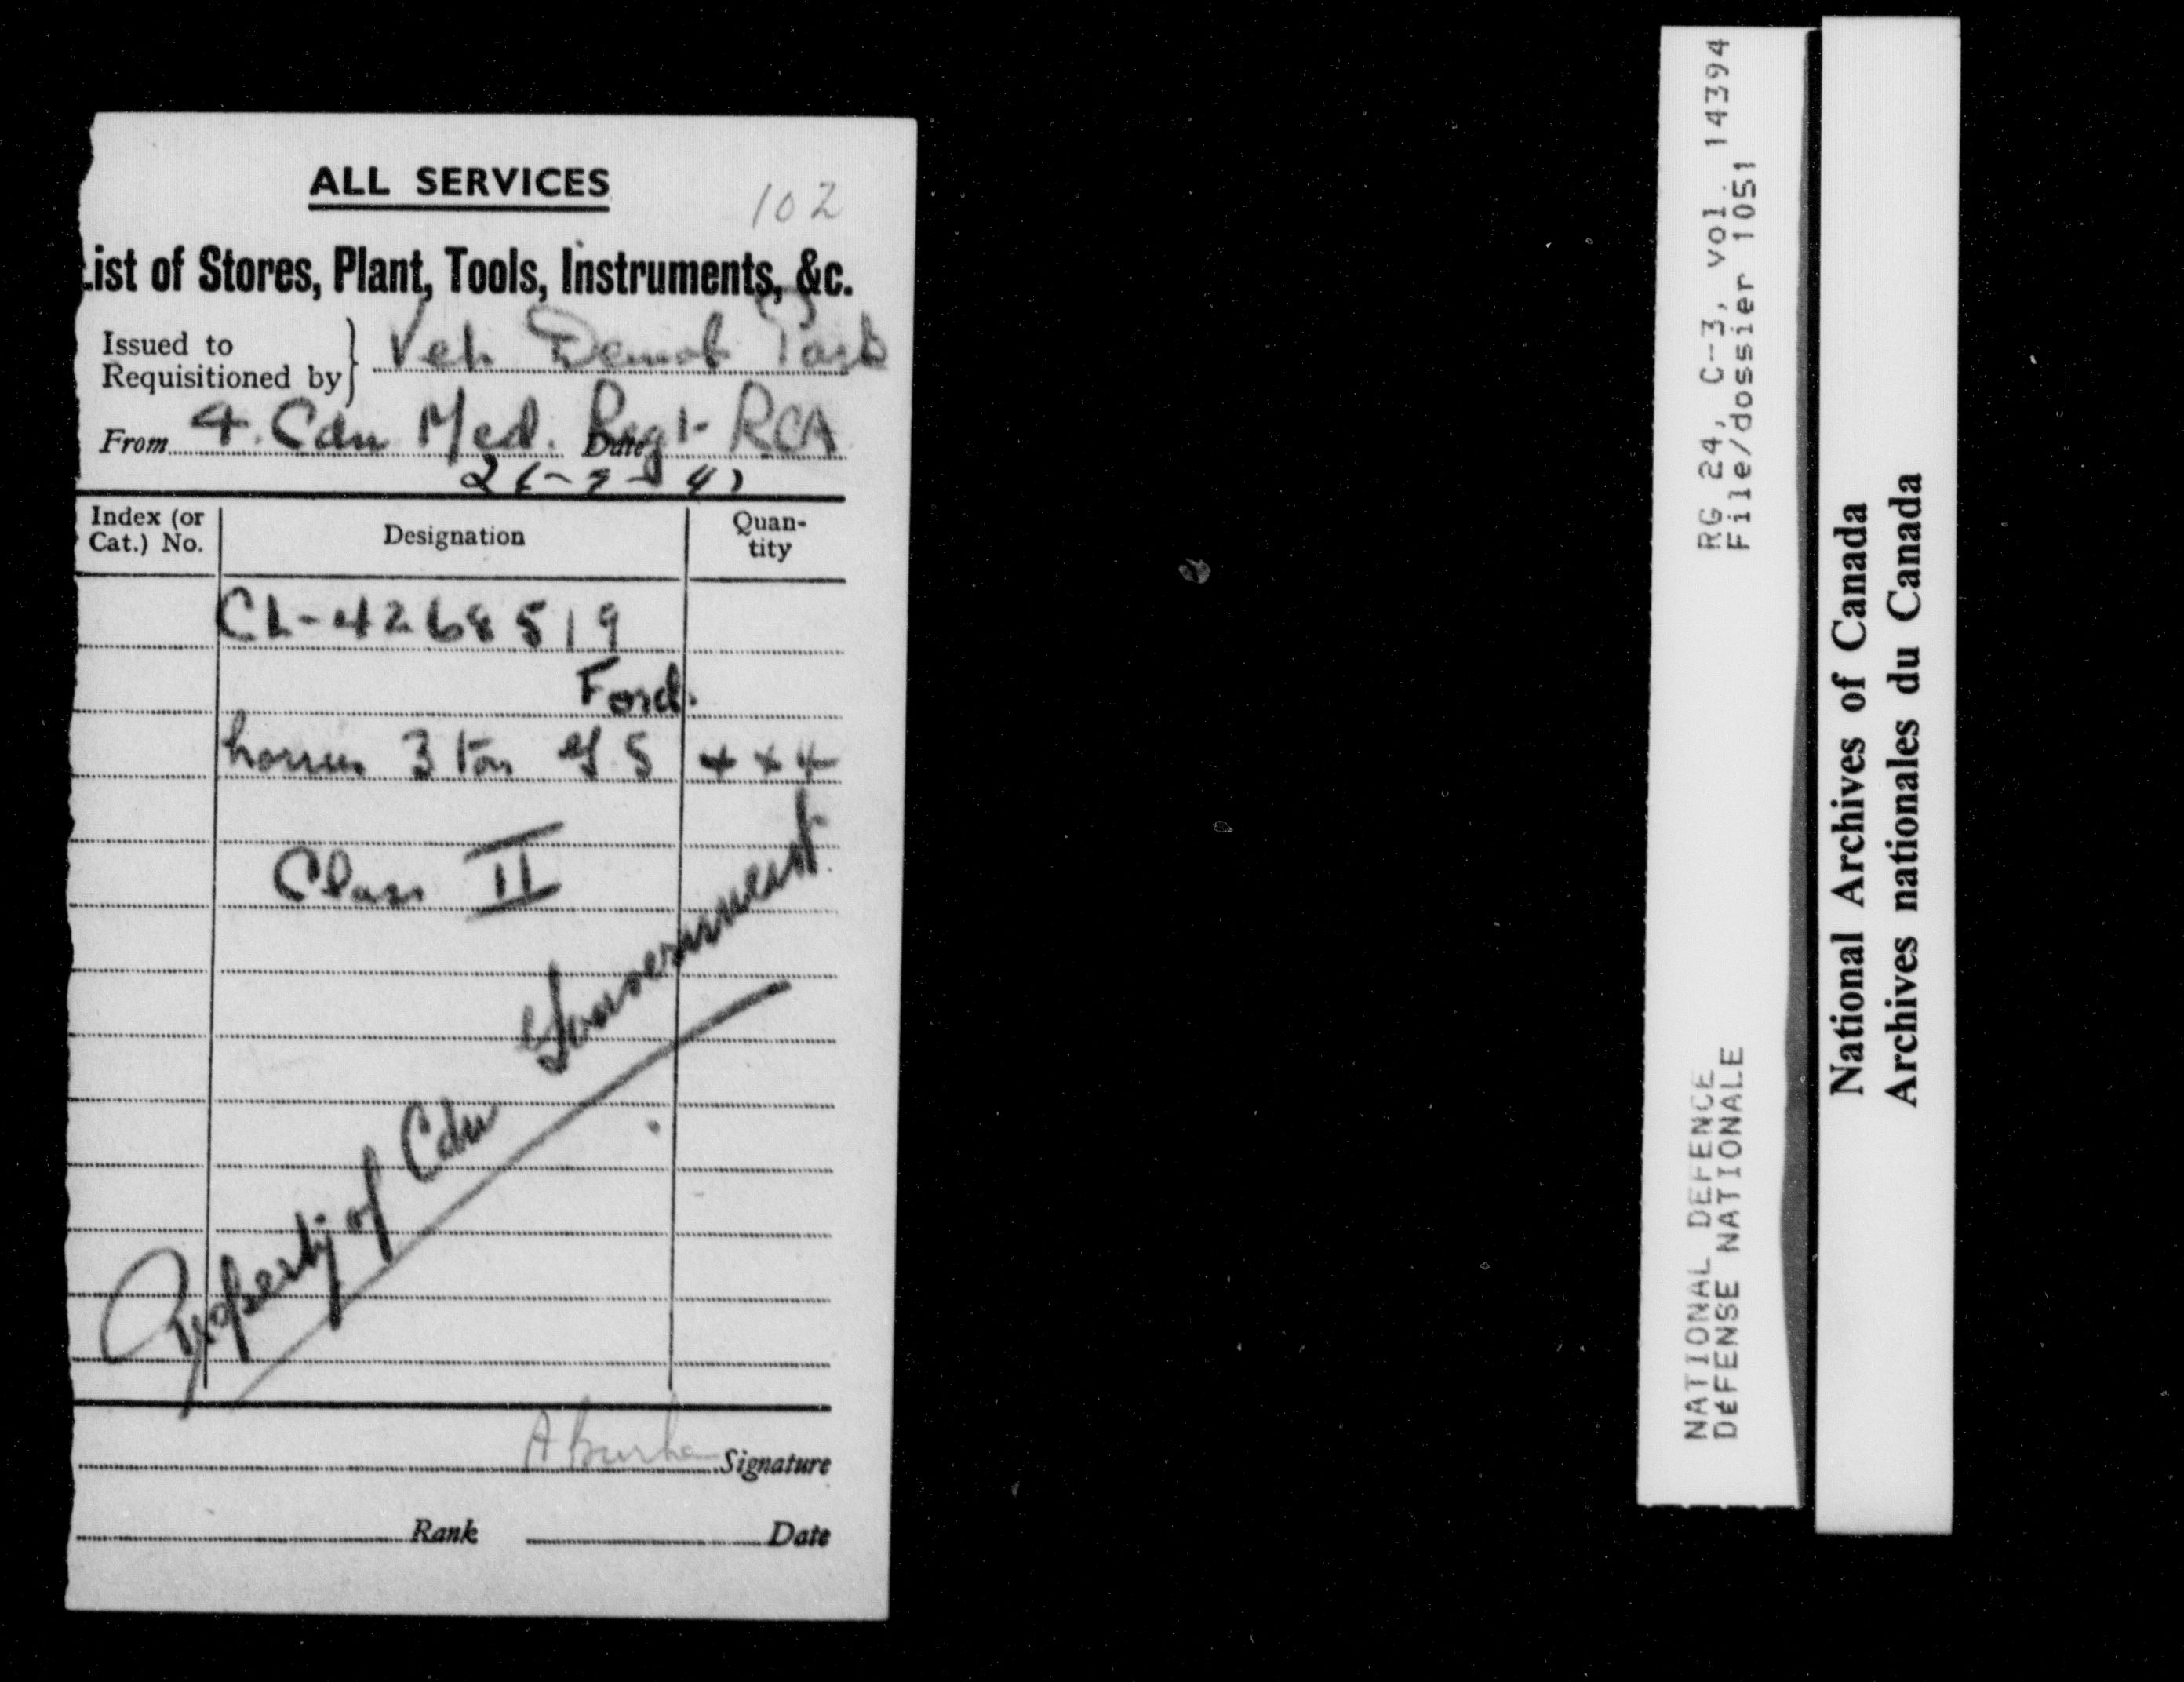 ALL SERVICES
102
List of Stores, Plant, Tools, Instruments, &c.
Issued to
Requisitioned by
Veh Demob Park
From 4. Cdn Med. Regt RCA
Date
Index (or Cat.) No.
Designation
Quan-tity
CL-4268519
Ford.
3 Ton G S
Class II
Property of Cdn Government
Signature
Rank Date
RG 24, C-3, vol. 14394
File/dossier 1051
NATIONAL DEFENCE
DÉFENSE NATIONALE
National Archives of Canada
Archives nationales du Canada